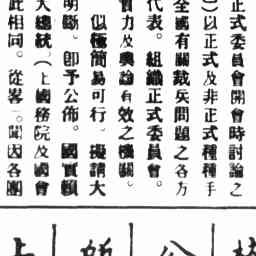 正式委員會開會時討論之
）以正式及非正式種種手
全國有關裁兵問題之各方
代表。組織正式委員會。
實力及輿論有效之機關。
似極簡易可行。擬請大
明斷。卽予公佈。國實賴
大總統（上國務院及國會
此相同。從客一。聞因各團